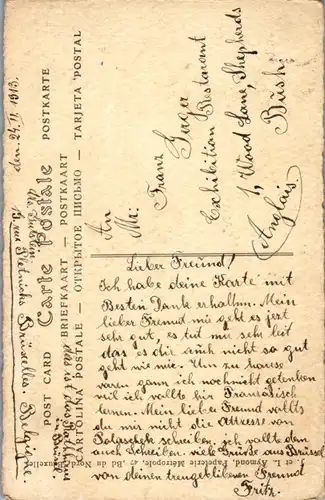 den. 24. II. 1913.
POST CARD Carte Postale POSTKARTE
BRIEFKAART — POSTKAART
CARTOLINA POSTALE — ОТКРЫТОЕ ПИСЬМО — TARJETA POSTAL
Bruxelles. Belgique
An
Mr: Franz
Exhibition Restarant
1, Wood Lane, Shepherds
Bush
Anglais.
Lieber Freund!
Ich habe deine Karte mit
Besten Dank erhalten. Mein
lieber Freund mir geht es jezt
sehr gut, es tut mir sehr leit
das es dir auch nicht so gut
geht wie mir. Um zu hause
varen gann ich noch nicht getenken
weil ich vollte hir Französisch
lernen. Mein lieber Freund vollts
du mir nicht die Attresse von
schreiben, ich vollte dem
auch schreiben. viele Grüße aus Brüssel
von deinen treugetlibenen Freund
Fritz.
Aymond, Papeterie Métropole, 47, Bd du Nord, Bruxelles